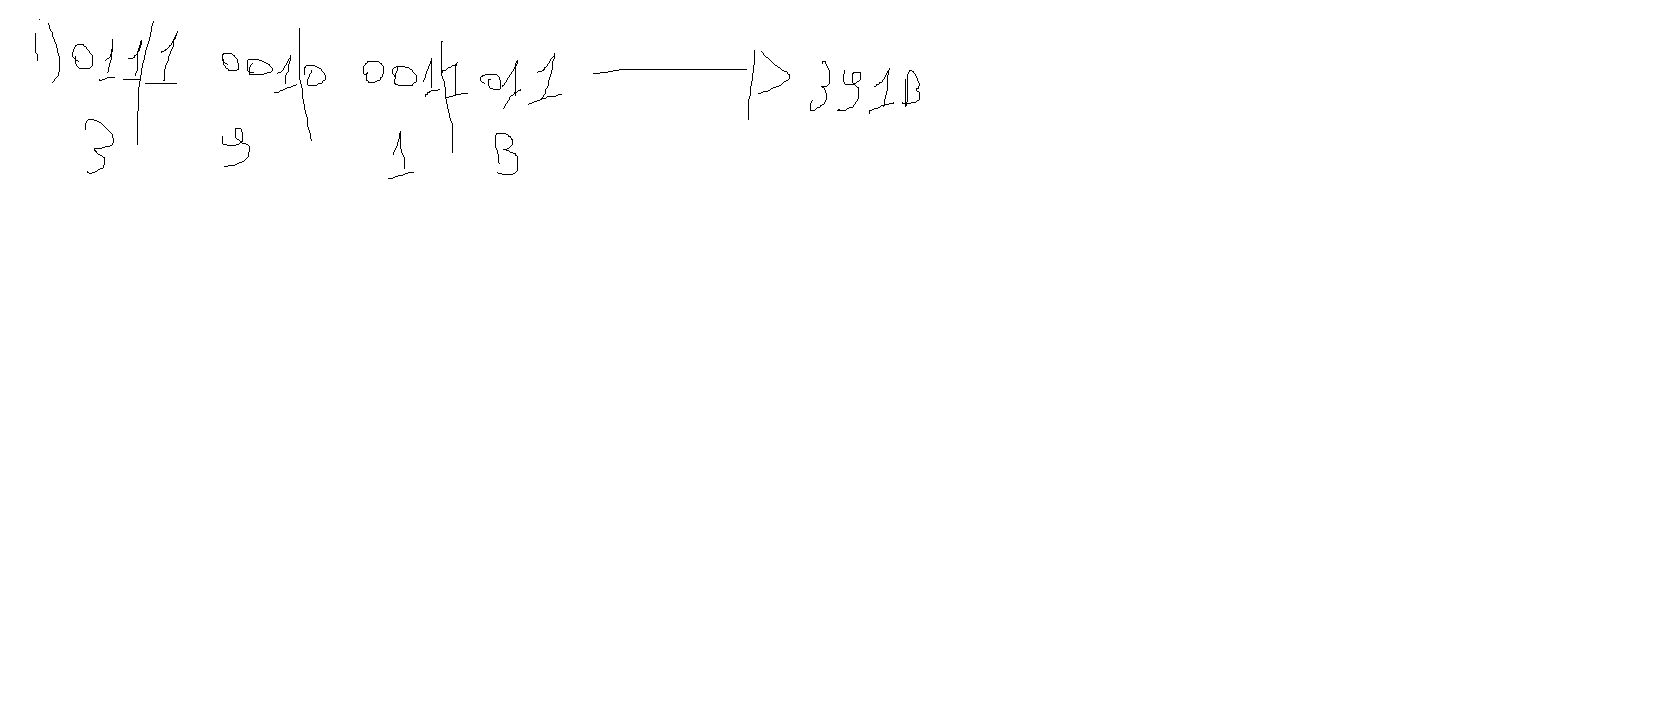 i) 0111 0010 0011 011 → 391B
3 9 1 B